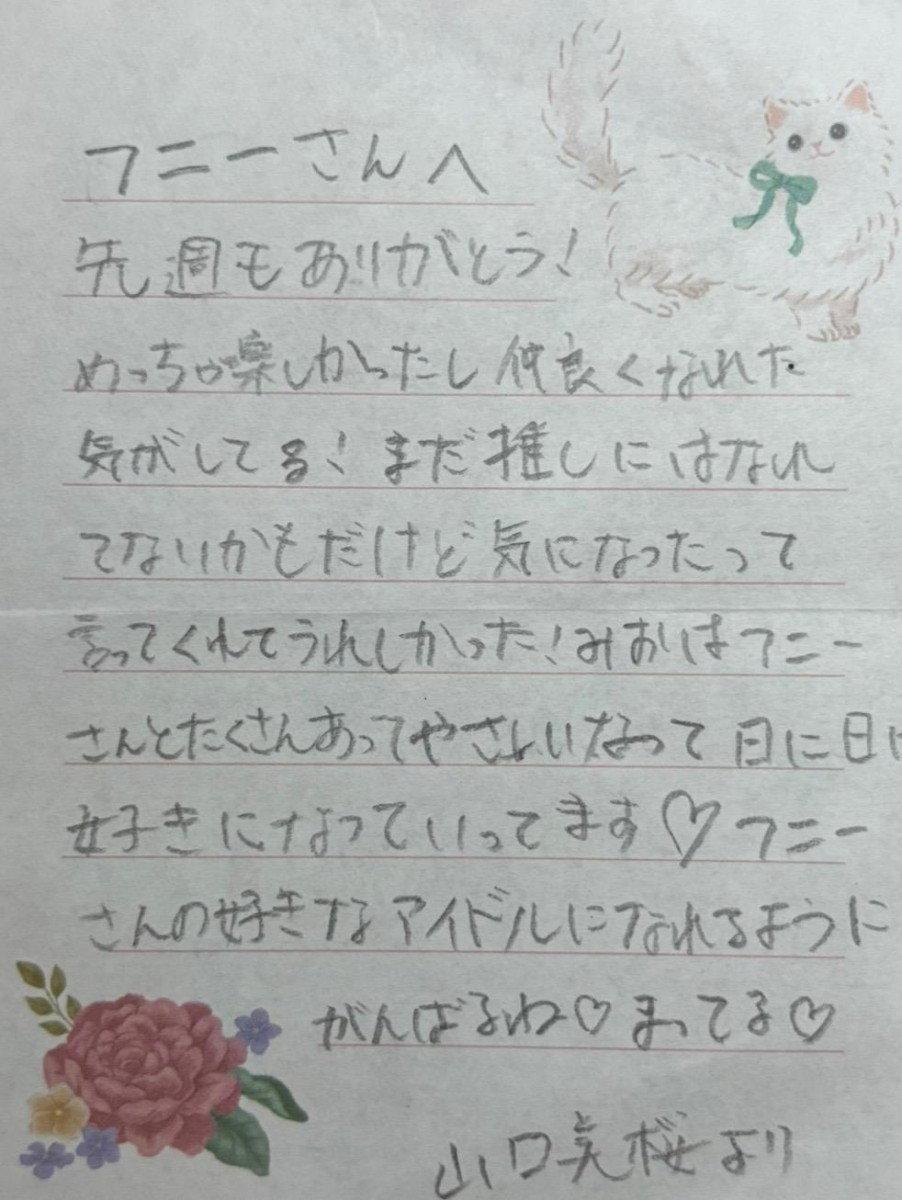 フニーさんへ
先週もありがとう!
めっちゃ楽しかったし仲良くなれた
気がしてる!まだ推しにはなれ
てないかもだけど気になったって
言ってくれてうれしかった!みおはフニー
さんとたくさんあってやさしいなって日に日に
好きになっていってます♡フニー
さんの好きなアイドルになれるように
がんばるね♡まってる♡
山口美桜より